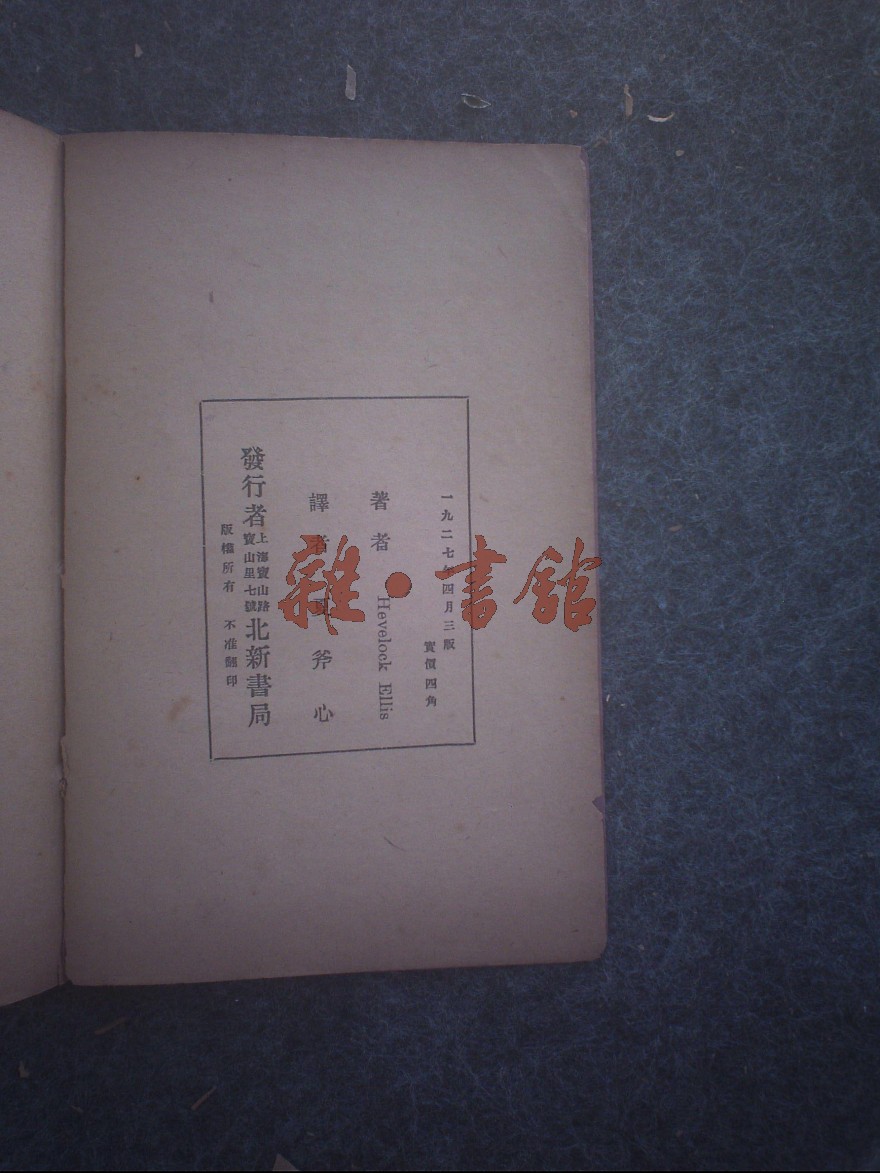 一九二七年四月三版
實價四角
著者 Hevelock Ellis
譯者 夏斧心
發行者 上海寶山路寶山里七號 北新書局
版權所有 不准翻印
雜·書館